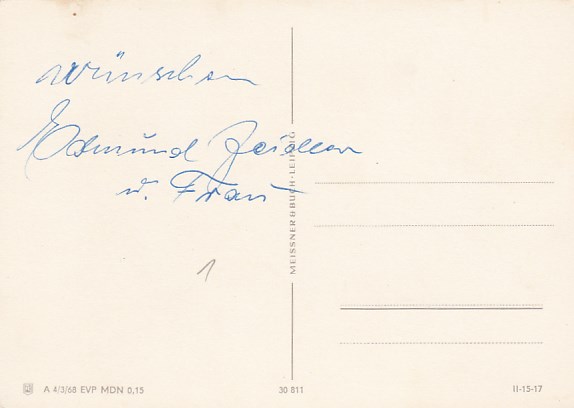 wünschen
Edmund Zeidler
u. Frau
1
MEISSNER & BUCH · LEIPZIG
A 4/3/68 EVP MDN 0,15
30 811
II-15-17